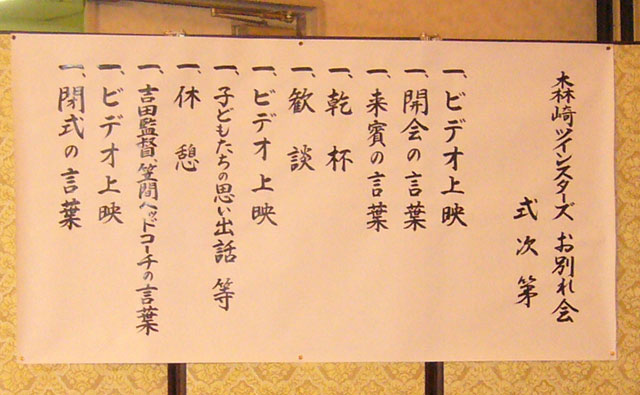 森崎ツインスターズ お別れ会
式次第
一、ビデオ上映
一、開会の言葉
一、来賓の言葉
一、乾杯
一、歓談
一、ビデオ上映
一、子どもたちの思い出話 等
一、休憩
一、吉田監督、笠間ヘッドコーチの言葉
一、ビデオ上映
一、閉式の言葉